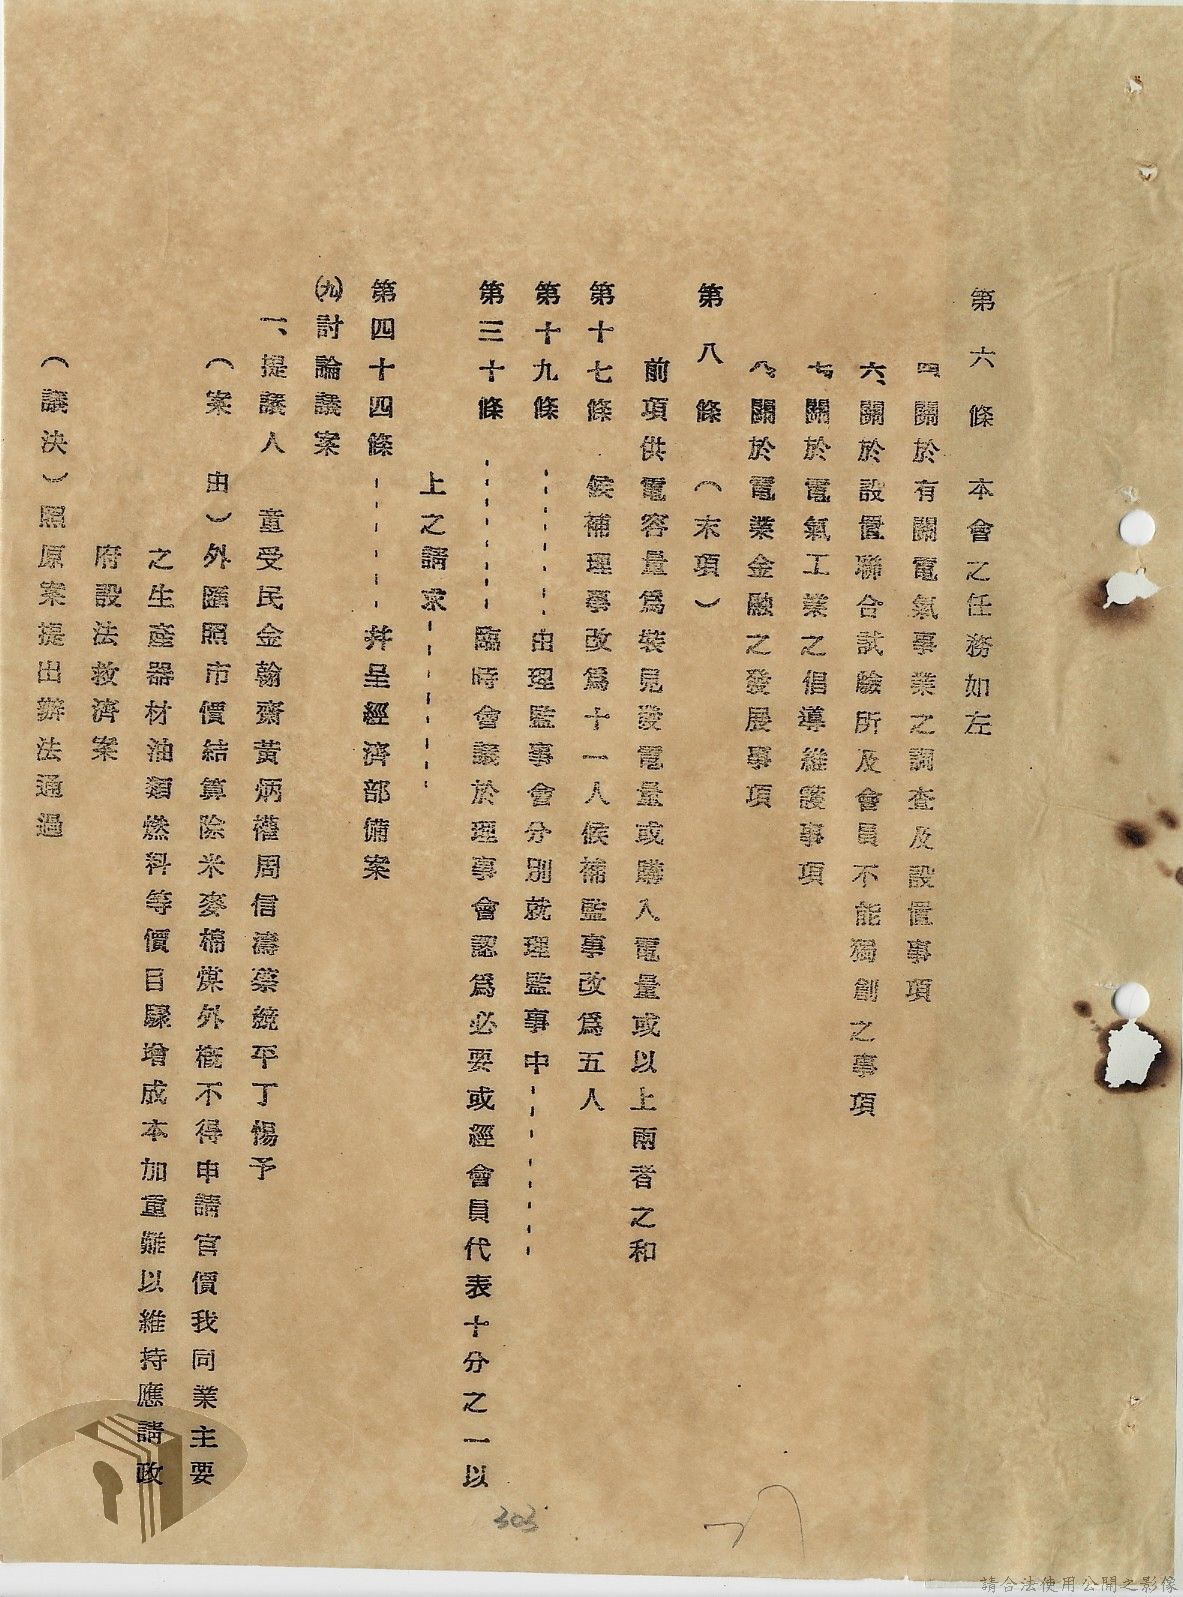 第六條 本會之任務如左
四、關於有關電氣事業之調查及設置事項
六、關於設置聯合試驗所及會員不能獨創之事項
七、關於電氣工業之倡導維護事項
八、關於電業金融之發展事項
第八條 （末項）
前項供電容量爲裝見發電量或購入電量或以上兩者之和
第十七條 候補理事改爲十一人候補監事改爲五人
第十九條 ‥‥‥由理監事會分別就理監事中‥‥‥
第三十條 ‥‥‥臨時會議於理事會認爲必要或經會員代表十分之一以
上之請求‥‥‥
第四十四條 ‥‥‥并呈經濟部備案
㈨討論議案
一、提議人 童受民金翰齋黃炳權周信濤蔡統平丁惕予
（案 由）外匯照市價結算除米麥棉煤外概不得申請官價我同業主要
之生產器材油類燃料等價目驟增成本加重難以維持應請政
府設法救濟案
（議決）照原案提出辦法通過
303
請合法使用公開之影像